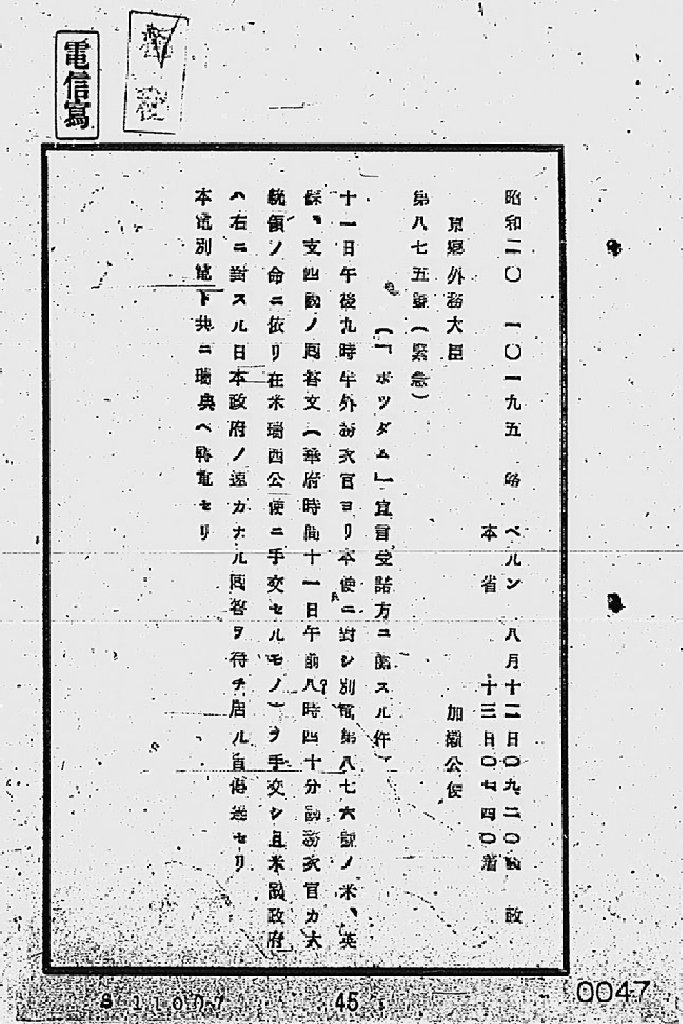 電信寫
昭和二〇 一〇一九五 略 ベルン 八月十二日〇九二〇發 政
本省 十三日〇七四〇着
東鄕外務大臣 加瀨公使
第八七五號(緊急)
(「ポツダム」宣言受諾方ニ關スル件)
十一日午後九時半外務次官ヨリ本使ニ對シ別電第八七六號ノ米、英
蘇、支四國ノ囘答文(華府時間十一日午前八時四十分國務次官カ大
統領ノ命ニ依リ在米瑞西公使ニ手交セルモノ)ヲ手交シ且米國政府
ハ右ニ對スル日本政府ノ速カナル囘答ヲ待チ居ル旨傳達セリ
本電別電ト共ニ瑞典ヘ轉電セリ
S 11007
45
0047